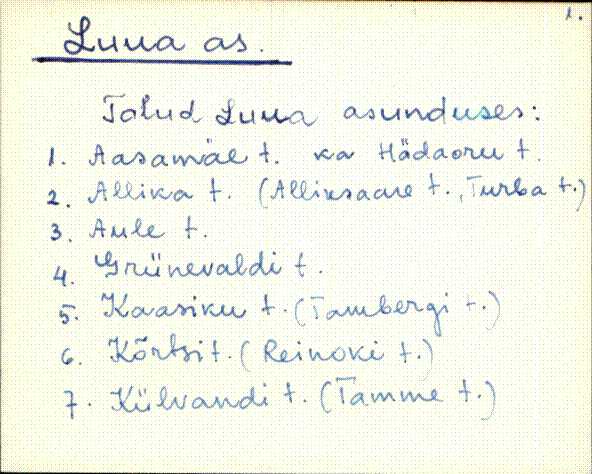 1.
Luua as.
Talud Luua asunduses:
1. Aasamäe t. ka Hädaoru t.
2. Allika t. (Alliksaare t., Turba t.)
3. Aule t.
4. Grünevaldi t.
5. Kaasiku t. (Tambergi t.)
6. Kõrtsi t. (Reinoki t.)
7. Külvandi t. (Tamme t.)